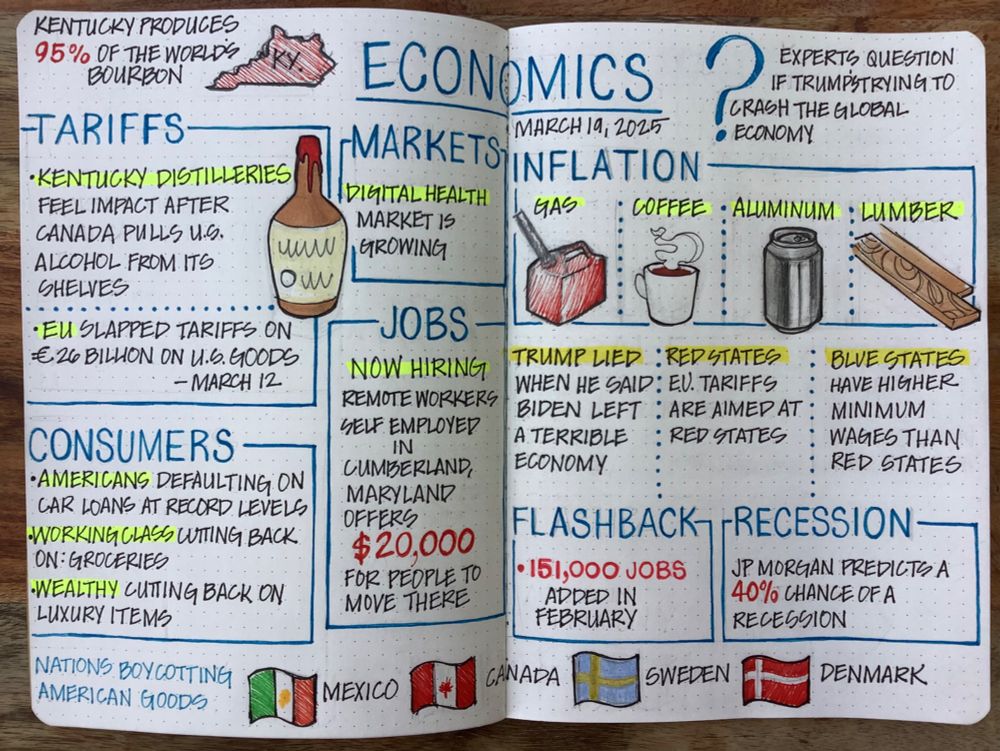 KENTUCKY PRODUCES
95% OF THE WORLD'S
BOURBON
KY.
ECONOMICS
MARCH 19, 2025
?
EXPERTS QUESTION
IF TRUMP'STRYING TO
CRASH THE GLOBAL
ECONOMY
TARIFFS
•KENTUCKY DISTILLERIES
FEEL IMPACT AFTER
CANADA PULLS U.S.
ALCOHOL FROM ITS
SHELVES
•EU SLAPPED TARIFFS ON
€26 BILLION ON U.S. GOODS
– MARCH 12
CONSUMERS
•AMERICANS DEFAULTING ON
CAR LOANS AT RECORD LEVELS
•WORKING CLASS CUTTING BACK
ON: GROCERIES
•WEALTHY CUTTING BACK ON
LUXURY ITEMS
MARKETS
DIGITAL HEALTH
MARKET IS
GROWING
JOBS
NOW HIRING
REMOTE WORKERS
SELF EMPLOYED
IN
CUMBERLAND,
MARYLAND
OFFERS
$20,000
FOR PEOPLE TO
MOVE THERE
INFLATION
GAS
COFFEE
ALUMINUM
LUMBER
TRUMP LIED
WHEN HE SAID
BIDEN LEFT
A TERRIBLE
ECONOMY
RED STATES
E.U. TARIFFS
ARE AIMED AT
RED STATES
BLUE STATES
HAVE HIGHER
MINIMUM
WAGES THAN
RED STATES
FLASHBACK
•151,000 JOBS
ADDED IN
FEBRUARY
RECESSION
JP MORGAN PREDICTS A
40% CHANCE OF A
RECESSION
NATIONS BOYCOTTING
AMERICAN GOODS
MEXICO
CANADA
SWEDEN
DENMARK